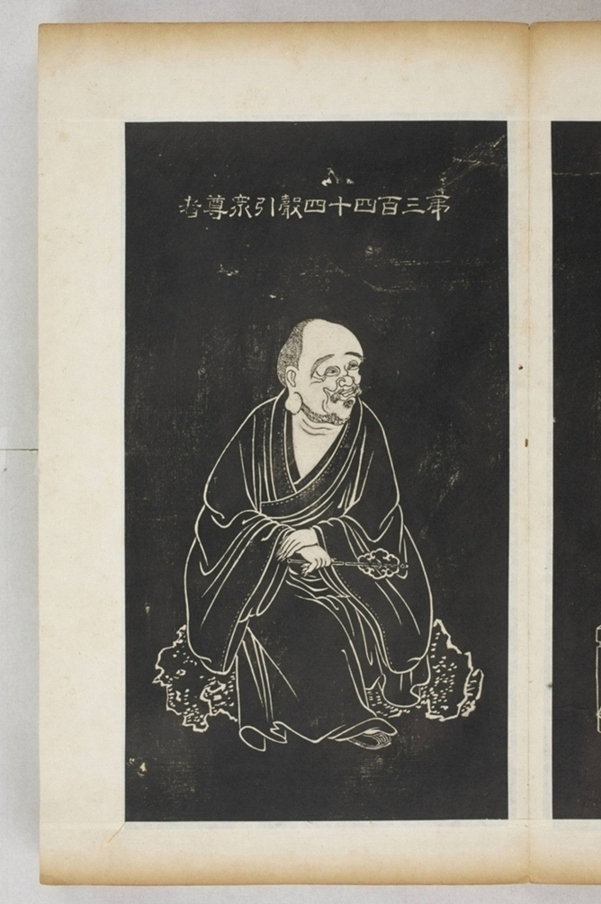 第三百四十四聲引衆尊者